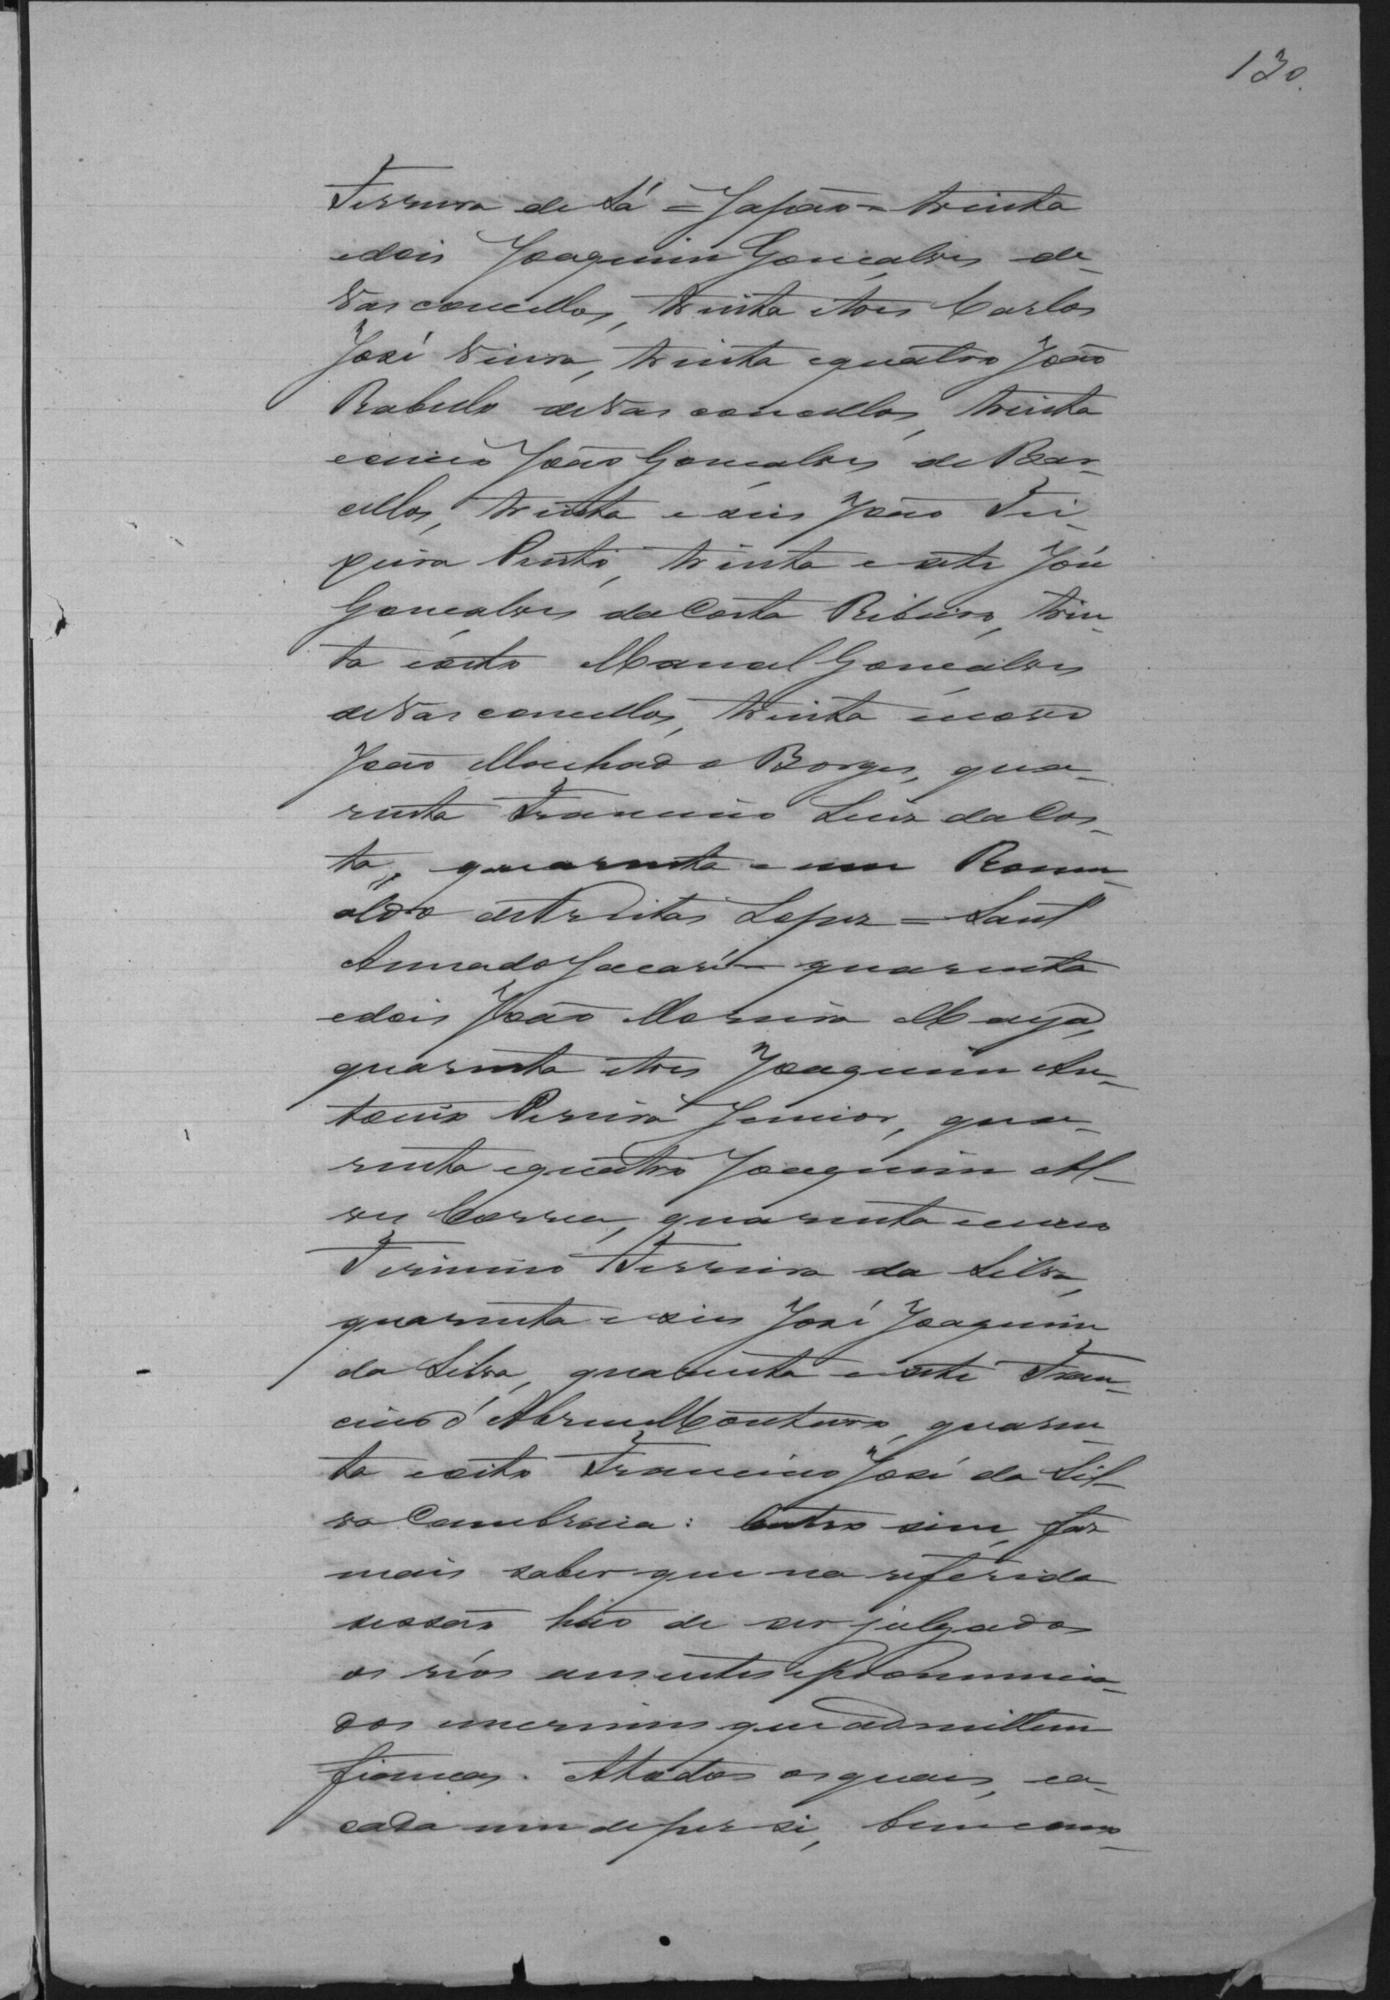 130.
Ferreira de Sá = Japão = trinta
e dois Joaquim Gonçalves de
Vasconcellos, trinta e tres Carlos
José Vieira, trinta e quatro João
Rabello de Vasconcellos, trinta
e cinco João Gonçalves de Bar-
cellos, trinta e seis João Tei-
xeira Pinto, trinta e sete José
Gonçalves da Costa Ribeiro, trin-
ta e oito Manoel Gonçalves
de Vasconcellos, trinta e nove
João Machado Borges, qua-
renta Francisco Luiz da Cos-
ta, quarenta e um Romu-
aldo de Freitas Lopes = Sant'
Anna do Jacaré = quarenta
e dois João Moreira Maya,
quarenta e tres Joaquim An-
tonio Pereira Junior, qua-
renta e quatro Joaquim Al-
ves Correa, quarenta e cinco
Firmino Ferreira da Silva,
quarenta e seis José Joaquim
da Silva, quarenta e sete Fran-
cisco d'Abreu Monteiro, quaren-
ta e oito Francisco José da Sil-
va Cambraia: Outro sim, faz
mais saber que na referida
sessão hão de ser julgados
os réos ausentes e pronuncia-
dos em crimes que admittem
fiança. A todos os quaes, e a
cada um de per si, bem como